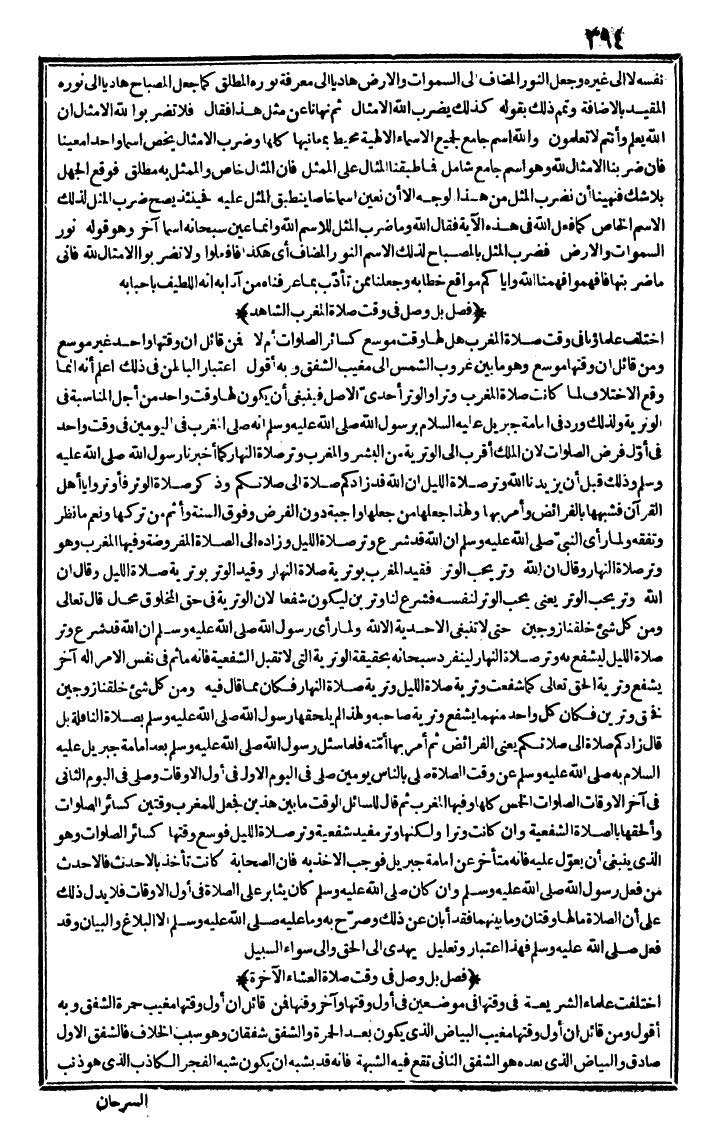 ٣٩٤
نفسه لا الى غيره وجعل النور المضاف الى السموات والارض هاديا الى معرفة نوره المطلق كما جعل المصباح هاديا الى نوره
المقيد بالاضافة وتمم ذلك بقوله كذلك يضرب الله الامثال ثم نهانا عن مثل هذا فقال فلا تضربوا لله الامثال ان
الله يعلم وأنتم لا تعلمون والله اسم جامع لجميع الاسماء الالهية محيط بمعانيها كلها وضرب الامثال يخص اسما واحدا معينا
فان ضربنا الامثال لله وهو اسم جامع شامل فما طبقنا المثال على الممثل فان المثال خاص والممثل به مطلق فوقع الجهل
بلا شك فنهينا أن نضرب المثل من هذا لوجه الا أن نعين اسما خاصا ينطبق المثل عليه فحينئذ يصح ضرب المثل لذلك
الاسم الخاص كما فعل الله فى هذه الآية فقال الله وما ضرب المثل للاسم الله وانما عين سبحانه اسما آخر وهو قوله نور
السموات والارض فضرب المثل بالمصباح لذلك الاسم النور المضاف أى هكذا فافعلوا ولا تضربوا الامثال لله فانى
ما ضربتها فافهموا فهمنا الله واياكم مواقع خطابه وجعلنا ممن تأدّب بما عرفناه من آدابه انه اللطيف باحبابه
﴿فصل بل وصل فى وقت صلاة المغرب الشاهد﴾
اختلف علماؤنا فى وقت صلاة المغرب هل لها وقت موسع كسائر الصلوات أم لا فمن قائل ان وقتها واحد غير موسع
ومن قائل ان وقتها موسع وهو ما بين غروب الشمس الى مغيب الشفق وبه أقول اعتبار الباطن فى ذلك اعلم أنه انما
وقع الاختلاف لما كانت صلاة المغرب وترا والوتر أحدىّ الاصل فينبغى أن يكون لها وقت واحد من أجل المناسبة فى
الوترية ولذلك ورد فى امامة جبريل عليه السلام برسول الله صلى الله عليه وسلم انه صلى المغرب فى اليومين فى وقت واحد
فى أوّل فرض الصلوات لان الملك أقرب الى الوترية من البشر والمغرب وتر صلاة النهار كما أخبرنا رسول الله صلى الله عليه
وسلم وذلك قبل أن يزيدنا الله وتر صلاة الليل ان الله قد زادكم صلاة الى صلاتكم وذكر صلاة الوتر فأوتروا يا أهل
القرآن فشبهها بالفرائض وأمر بها ولهذا جعلها من جعلها واجبة دون الفرض وفوق السنة وأثم من تركها ونعم ما نظر
وتفقه ولما رأى النبىّ صلى الله عليه وسلم ان الله قد شرع وتر صلاة الليل وزاده الى الصلاة المفروضة وفيها المغرب وهو
وتر صلاة النهار وقال ان الله وتر يحب الوتر فقيد المغرب بوترية صلاة النهار وقيد الوتر بوترية صلاة الليل وقال ان
الله وتر يحب الوتر يعنى يحب الوتر لنفسه فشرع لنا وترين ليكون شفعا لان الوترية فى حق المخلوق محال قال تعالى
ومن كل شئ خلقنا زوجين حتى لا تنبغى الاحدية الا لله ولما رأى رسول الله صلى الله عليه وسلم ان الله قد شرع وتر
صلاة الليل ليشفع به وتر صلاة النهار لينفرد سبحانه بحقيقة الوترية التى لا تقبل الشفعية فانه ما ثم فى نفس الامر اله آخر
يشفع وترية الحق تعالى كما شفعت وترية صلاة الليل وترية صلاة النهار فكان مما قال فيه ومن كل شئ خلقنا زوجين
فخلق وترين فكان كل واحد منهما يشفع وترية صاحبه ولهذا لم يلحقها رسول الله صلى الله عليه وسلم بصلاة النافلة بل
قال زادكم صلاة الى صلاتكم يعنى الفرائض ثم أمر بها أمّته فلما سئل رسول الله صلى الله عليه وسلم بعد امامة جبريل عليه
السلام به صلى الله عليه وسلم عن وقت الصلاة صلى بالناس يومين صلى فى اليوم الاول فى أول الاوقات وصلى فى اليوم الثانى
فى آخر الاوقات الصلوات الخمس كلها وفيها المغرب ثم قال للسائل الوقت ما بين هذين فجعل للمغرب وقتين كسائر الصلوات
وألحقها بالصلاة الشفعية وان كانت وترا ولكنها وتر مفيد شفعية وتر صلاة الليل فوسع وقتها كسائر الصلوات وهو
الذى ينبغى أن يعوّل عليه فانه متأخر عن امامة جبريل فوجب الاخذ به فان الصحابة كانت تأخذ بالاحدث فالاحدث
من فعل رسول الله صلى الله عليه وسلم وان كان صلى الله عليه وسلم كان يثابر على الصلاة فى أول الاوقات فلا يدل ذلك
على أن الصلاة ما لها وقتان وما بينهما فقد أبان عن ذلك وصرّح به وما عليه صلى الله عليه وسلم الا البلاغ والبيان وقد
فعل صلى الله عليه وسلم فهذا اعتبار وتعليل يهدى الى الحق والى سواء السبيل
﴿فصل بل وصل فى وقت صلاة العشاء الآخرة﴾
اختلفت علماء الشريعة فى وقتها فى موضعين فى أول وقتها وآخر وقتها فمن قائل ان أول وقتها مغيب حمرة الشفق وبه
أقول ومن قائل ان أول وقتها مغيب البياض الذى يكون بعد الحمرة والشفق شفقان وهو سبب الخلاف فالشفق الاول
صادق والبياض الذى بعده هو الشفق الثانى تقع فيه الشبهة فانه قد يشبه ان يكون شبه الفجر الكاذب الذى هو ذنب
السرحان